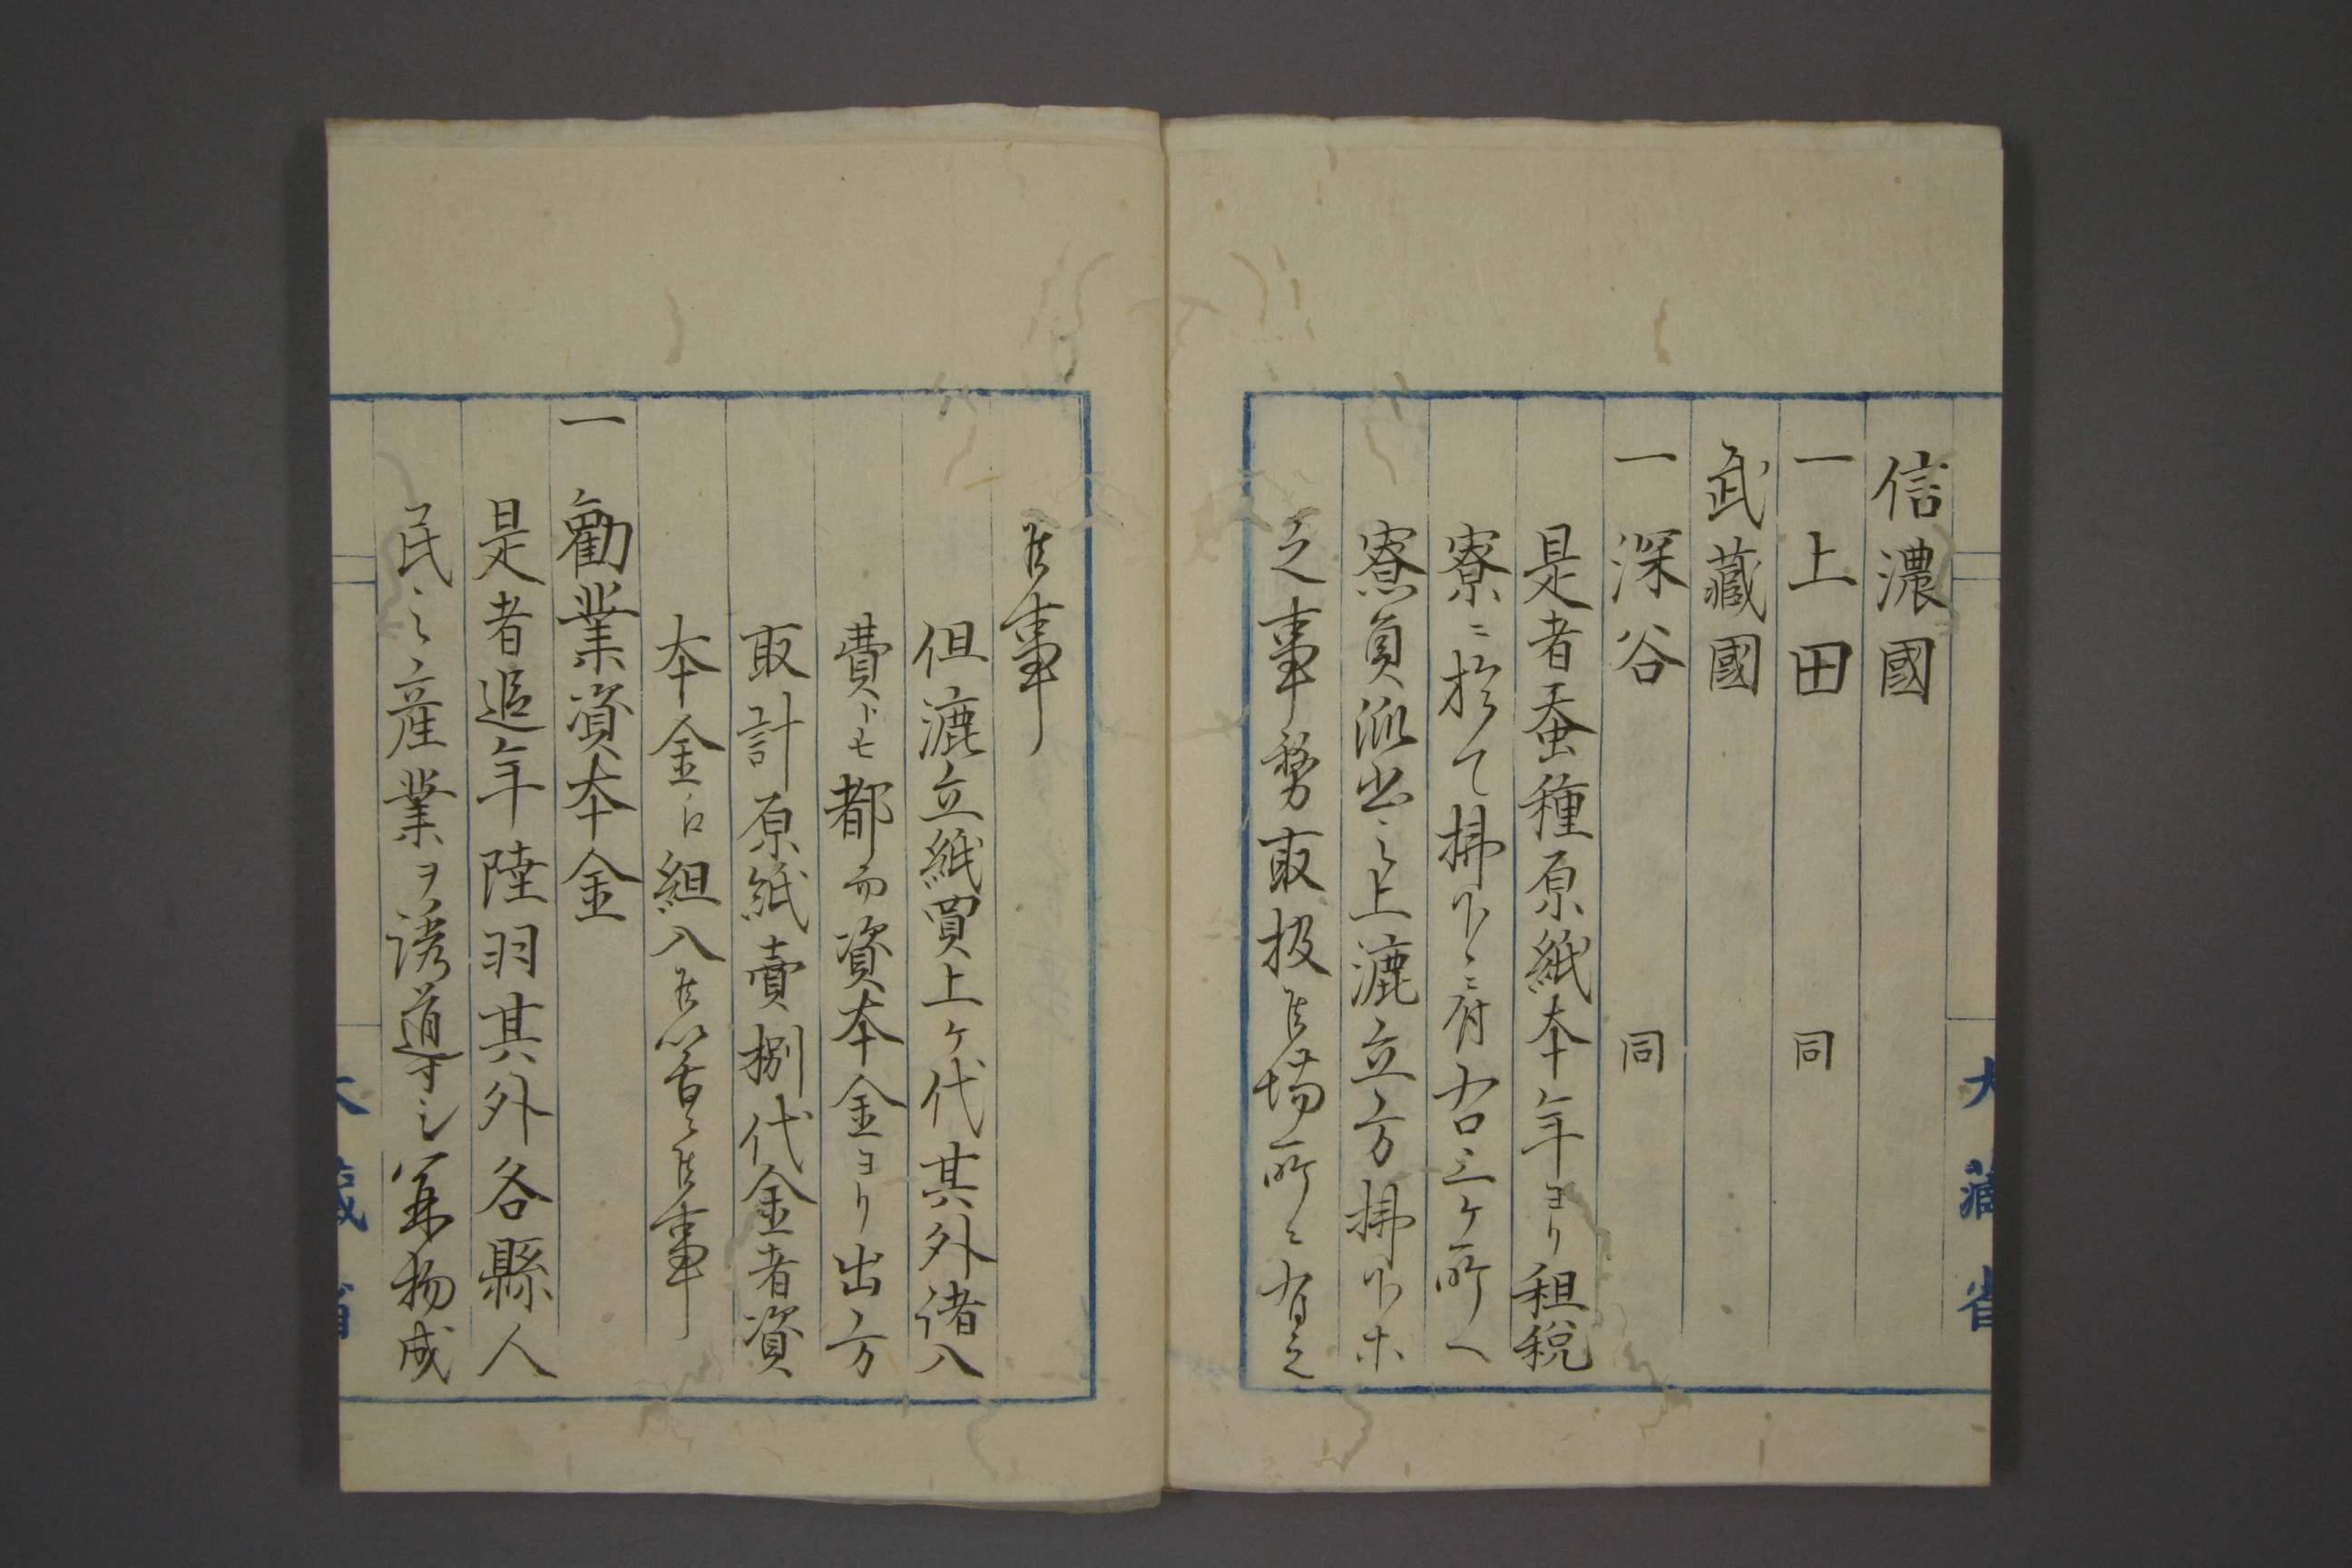 信濃國
一上田 同
武藏國
一深谷 同
是者蚕種原紙本年ヨリ租税
寮ニ於て拂下ニ付右三ケ所へ
寮員派出之上漉立方拂下ホ
之事務取扱候場所ニ有之
候事
但漉立紙買上ケ代其外諸入
費トモ都而資本金ヨリ出方
取計原紙賣捌代金者資
本金江組入候筈ニ候事
一勸業資本金
是者追年陸羽其外各縣人
民之産業ヲ誘導シ算物成
大藏省
大藏省